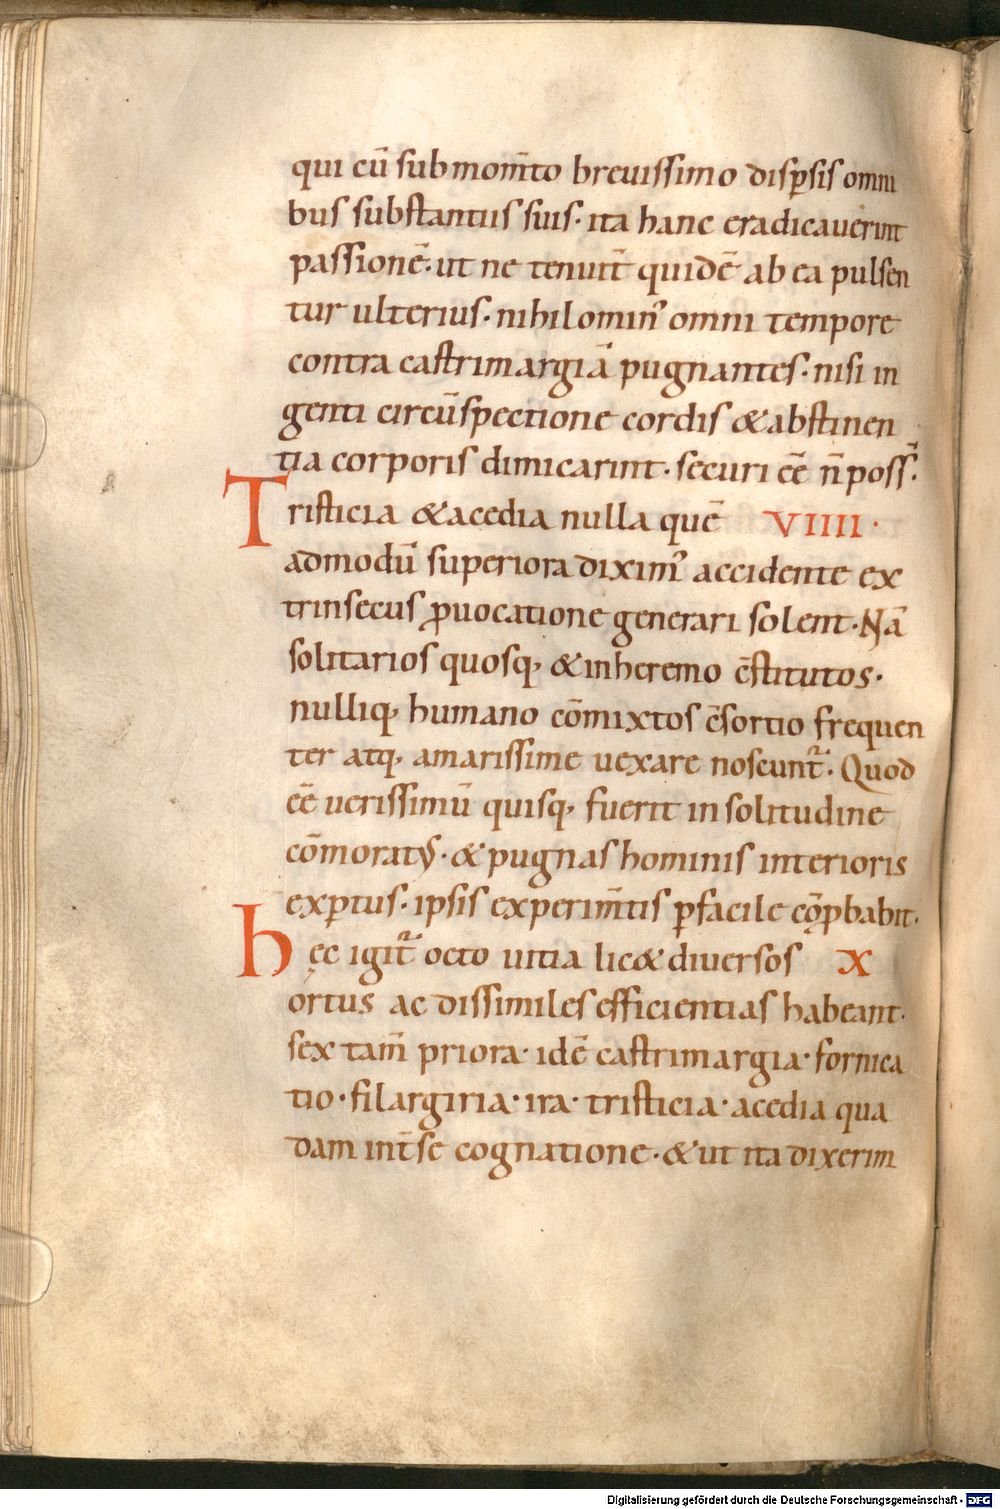 qui cū sub mom̄to breuissimo disp̱sis omni
bus substantiis suis· ita hanc eradicauerint
passionē· ut ne tenuit̄ quidē ab ea pulsen
tur ulterius· nihilomin' omni tempore
contra castrimargiā pugnantes· nisi in
genti circūspectione cordis &abstinen
tia corporis dimicarint· securi eē n̄ poss̄·
Tristicia &acedia nulla quē VIIII·
admodū superiora dixim' accidente ex
trinsecus ꝓuocatione generari solent· Nā
solitarios quosq; &inheremo c̄stitutos·
nulliq; humano cōmixtos c̄sortio frequen
ter atq; amarissime uexare noscunt᷑· Quod
eē uerissimū quisq; fuerit in solitudine
cōmoratꝰ· &pugnas hominis interioris
exꝑtus· ipsis experim̄tis ꝑfacile cōꝓbabit·
hęc igit᷑ octo uitia lic& diuersos X
ortus ac dissimiles efficientias habeant·
sex tam̄ priora· idē castrimargia· fornica
tio· filargiria· ira· tristicia· acedia qua
dam int̄ se cognatione· &ut ita dixerim
Digitalisierung gefördert durch die Deutsche Forschungsgemeinschaft - DFG